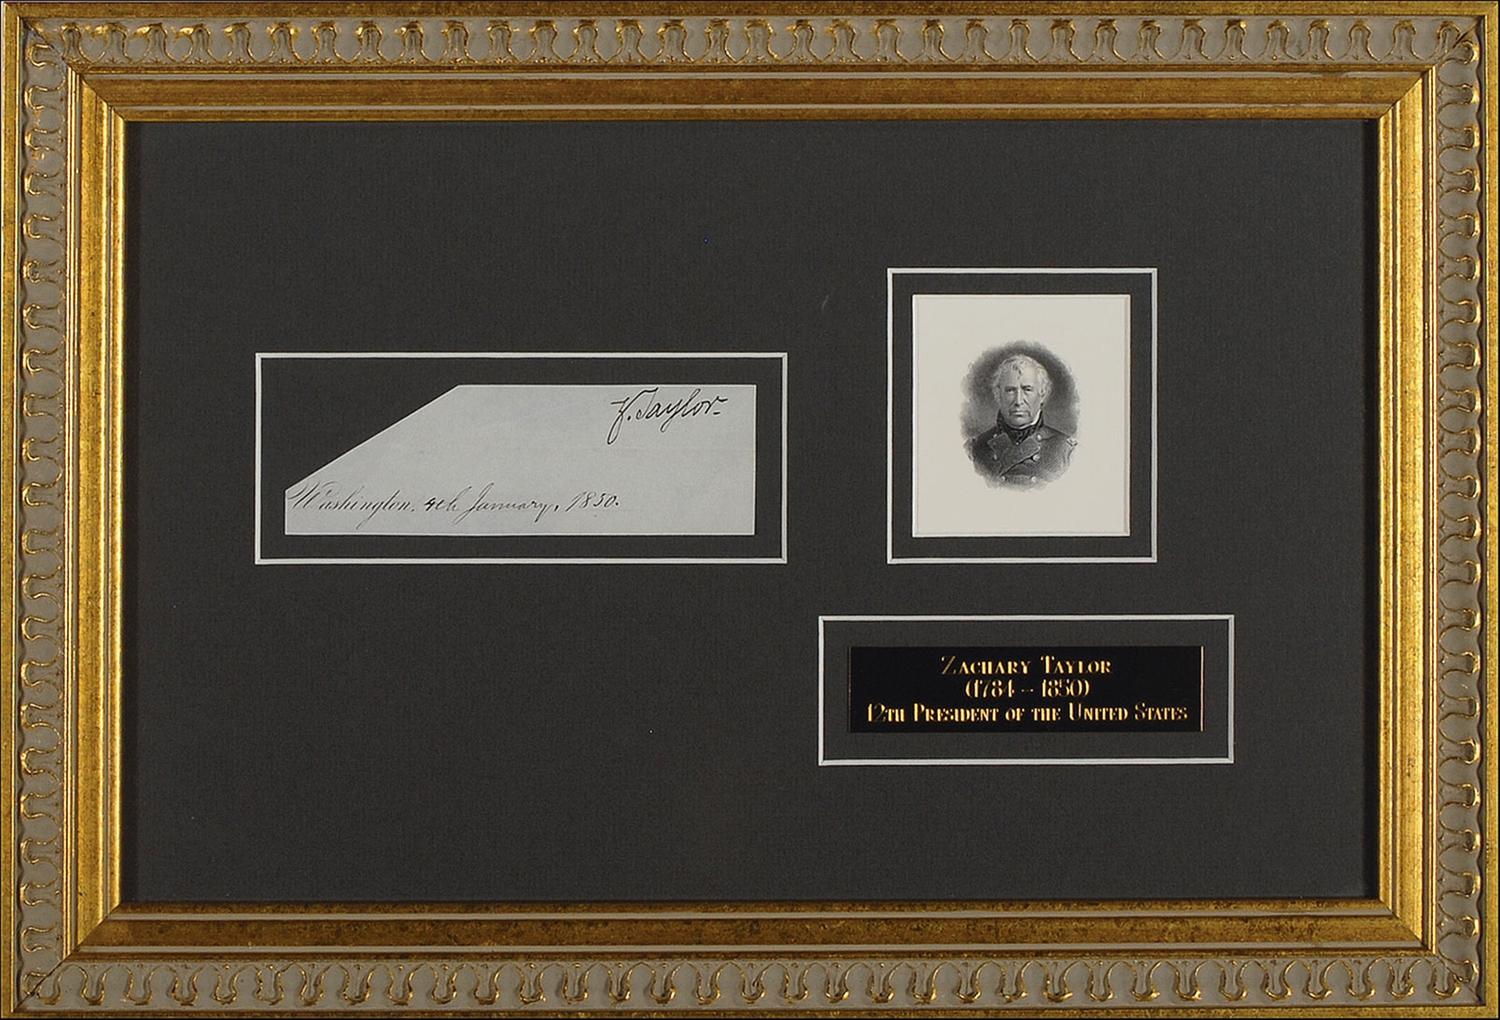 Z. Taylor.
Washington, 4th January, 1850.
ZACHARY TAYLOR
(1784 – 1850)
12TH PRESIDENT OF THE UNITED STATES